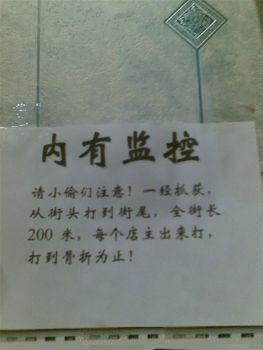 内有监控
请小偷们注意！一经抓获，
从街头打到街尾，全街长
200 米，每个店主出来打，
打到骨折为止！